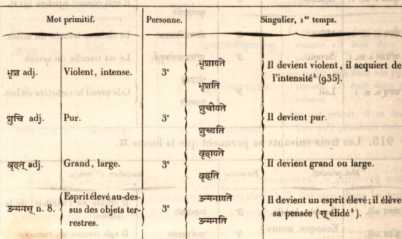 Mot primitif. Personne. Singulier, 1er temps.
भृश adj. Violent, intense. 3e भृशायते Il devient violent, il acquiert de
भृशति l'intensité (935).
शुचि adj. Pur. 3e शुचीयते Il devient pur.
शुच्यति
वृहत् adj. Grand, large. 3e वृहायते Il devient grand ou large.
वृहति
उन्मनस् n. 8. Esprit élevé au-des-
sus des objets ter-
restres. 3e उन्मनायते Il devient un esprit élevé; il élève
उन्मनति sa pensée (स् élidé).